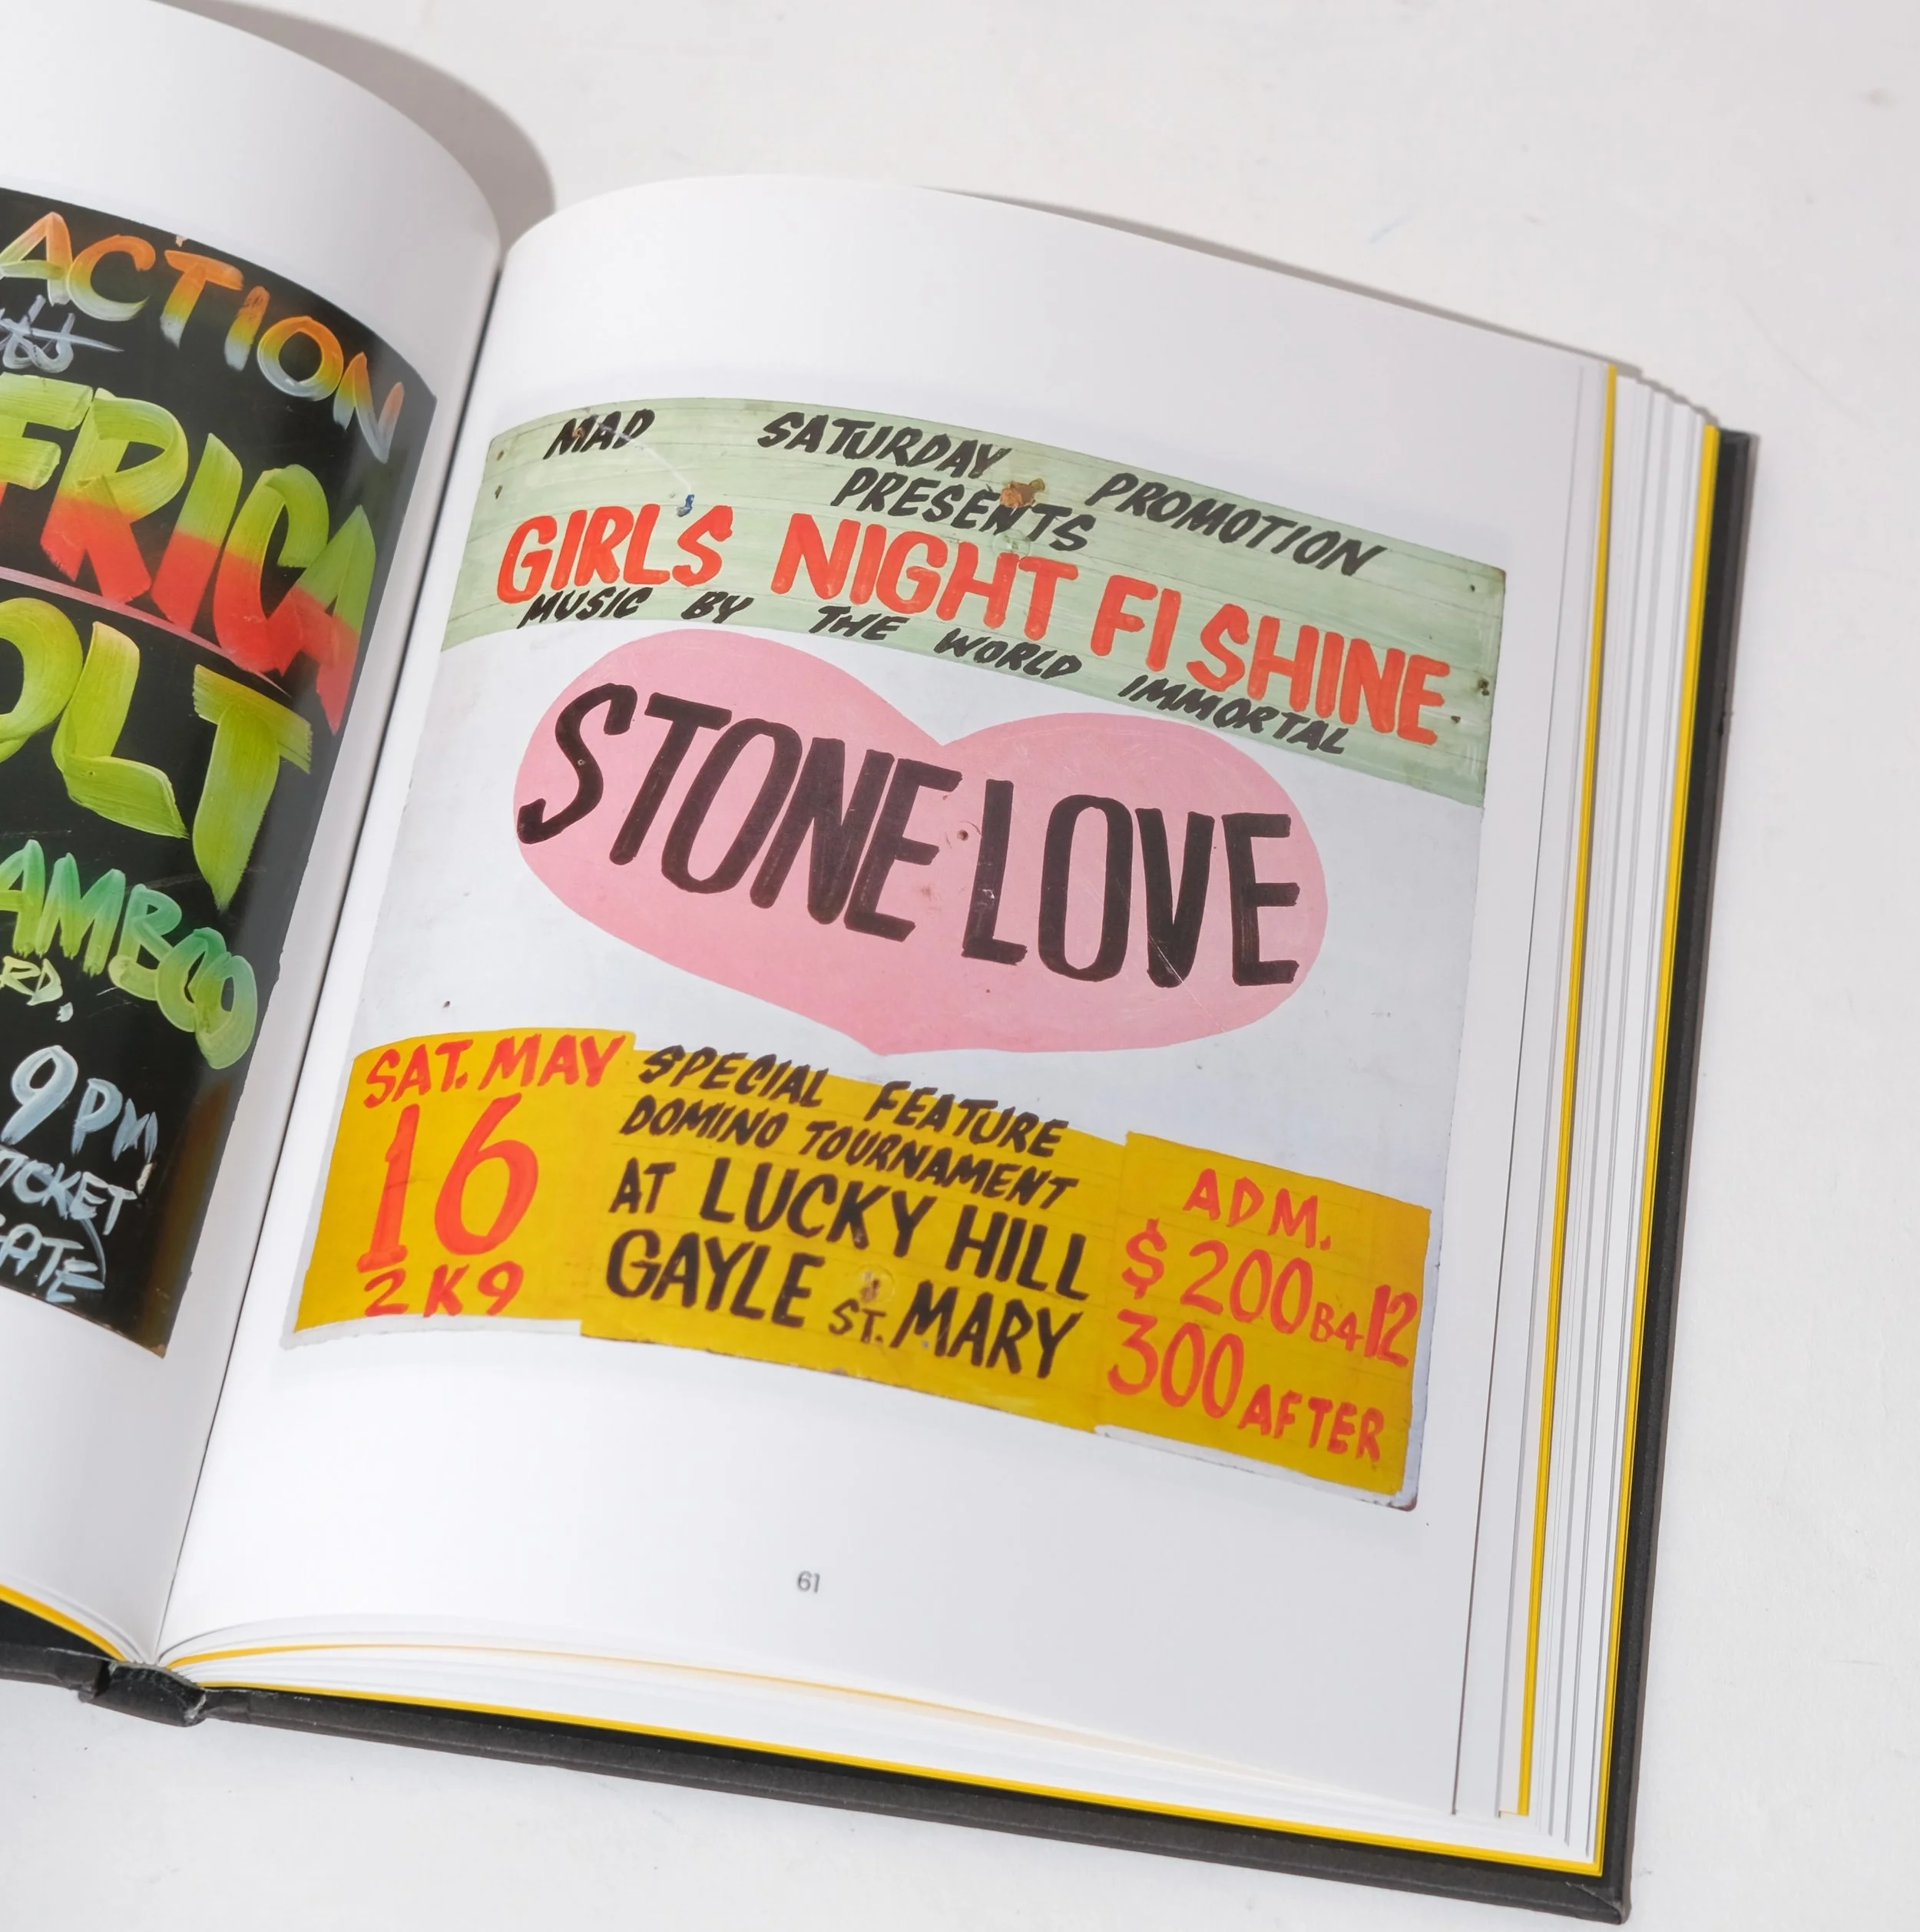 ACTION
FRICA
OLT
AMBOO
RD.
9 PM
TICKET
GATE
MAD SATURDAY PROMOTION
PRESENTS
GIRL'S NIGHT FI SHINE
MUSIC BY THE WORLD IMMORTAL
STONE LOVE
SAT. MAY
16
2K9
SPECIAL FEATURE
DOMINO TOURNAMENT
AT LUCKY HILL
GAYLE ST. MARY
ADM.
$200 B4 12
300 AFTER
61